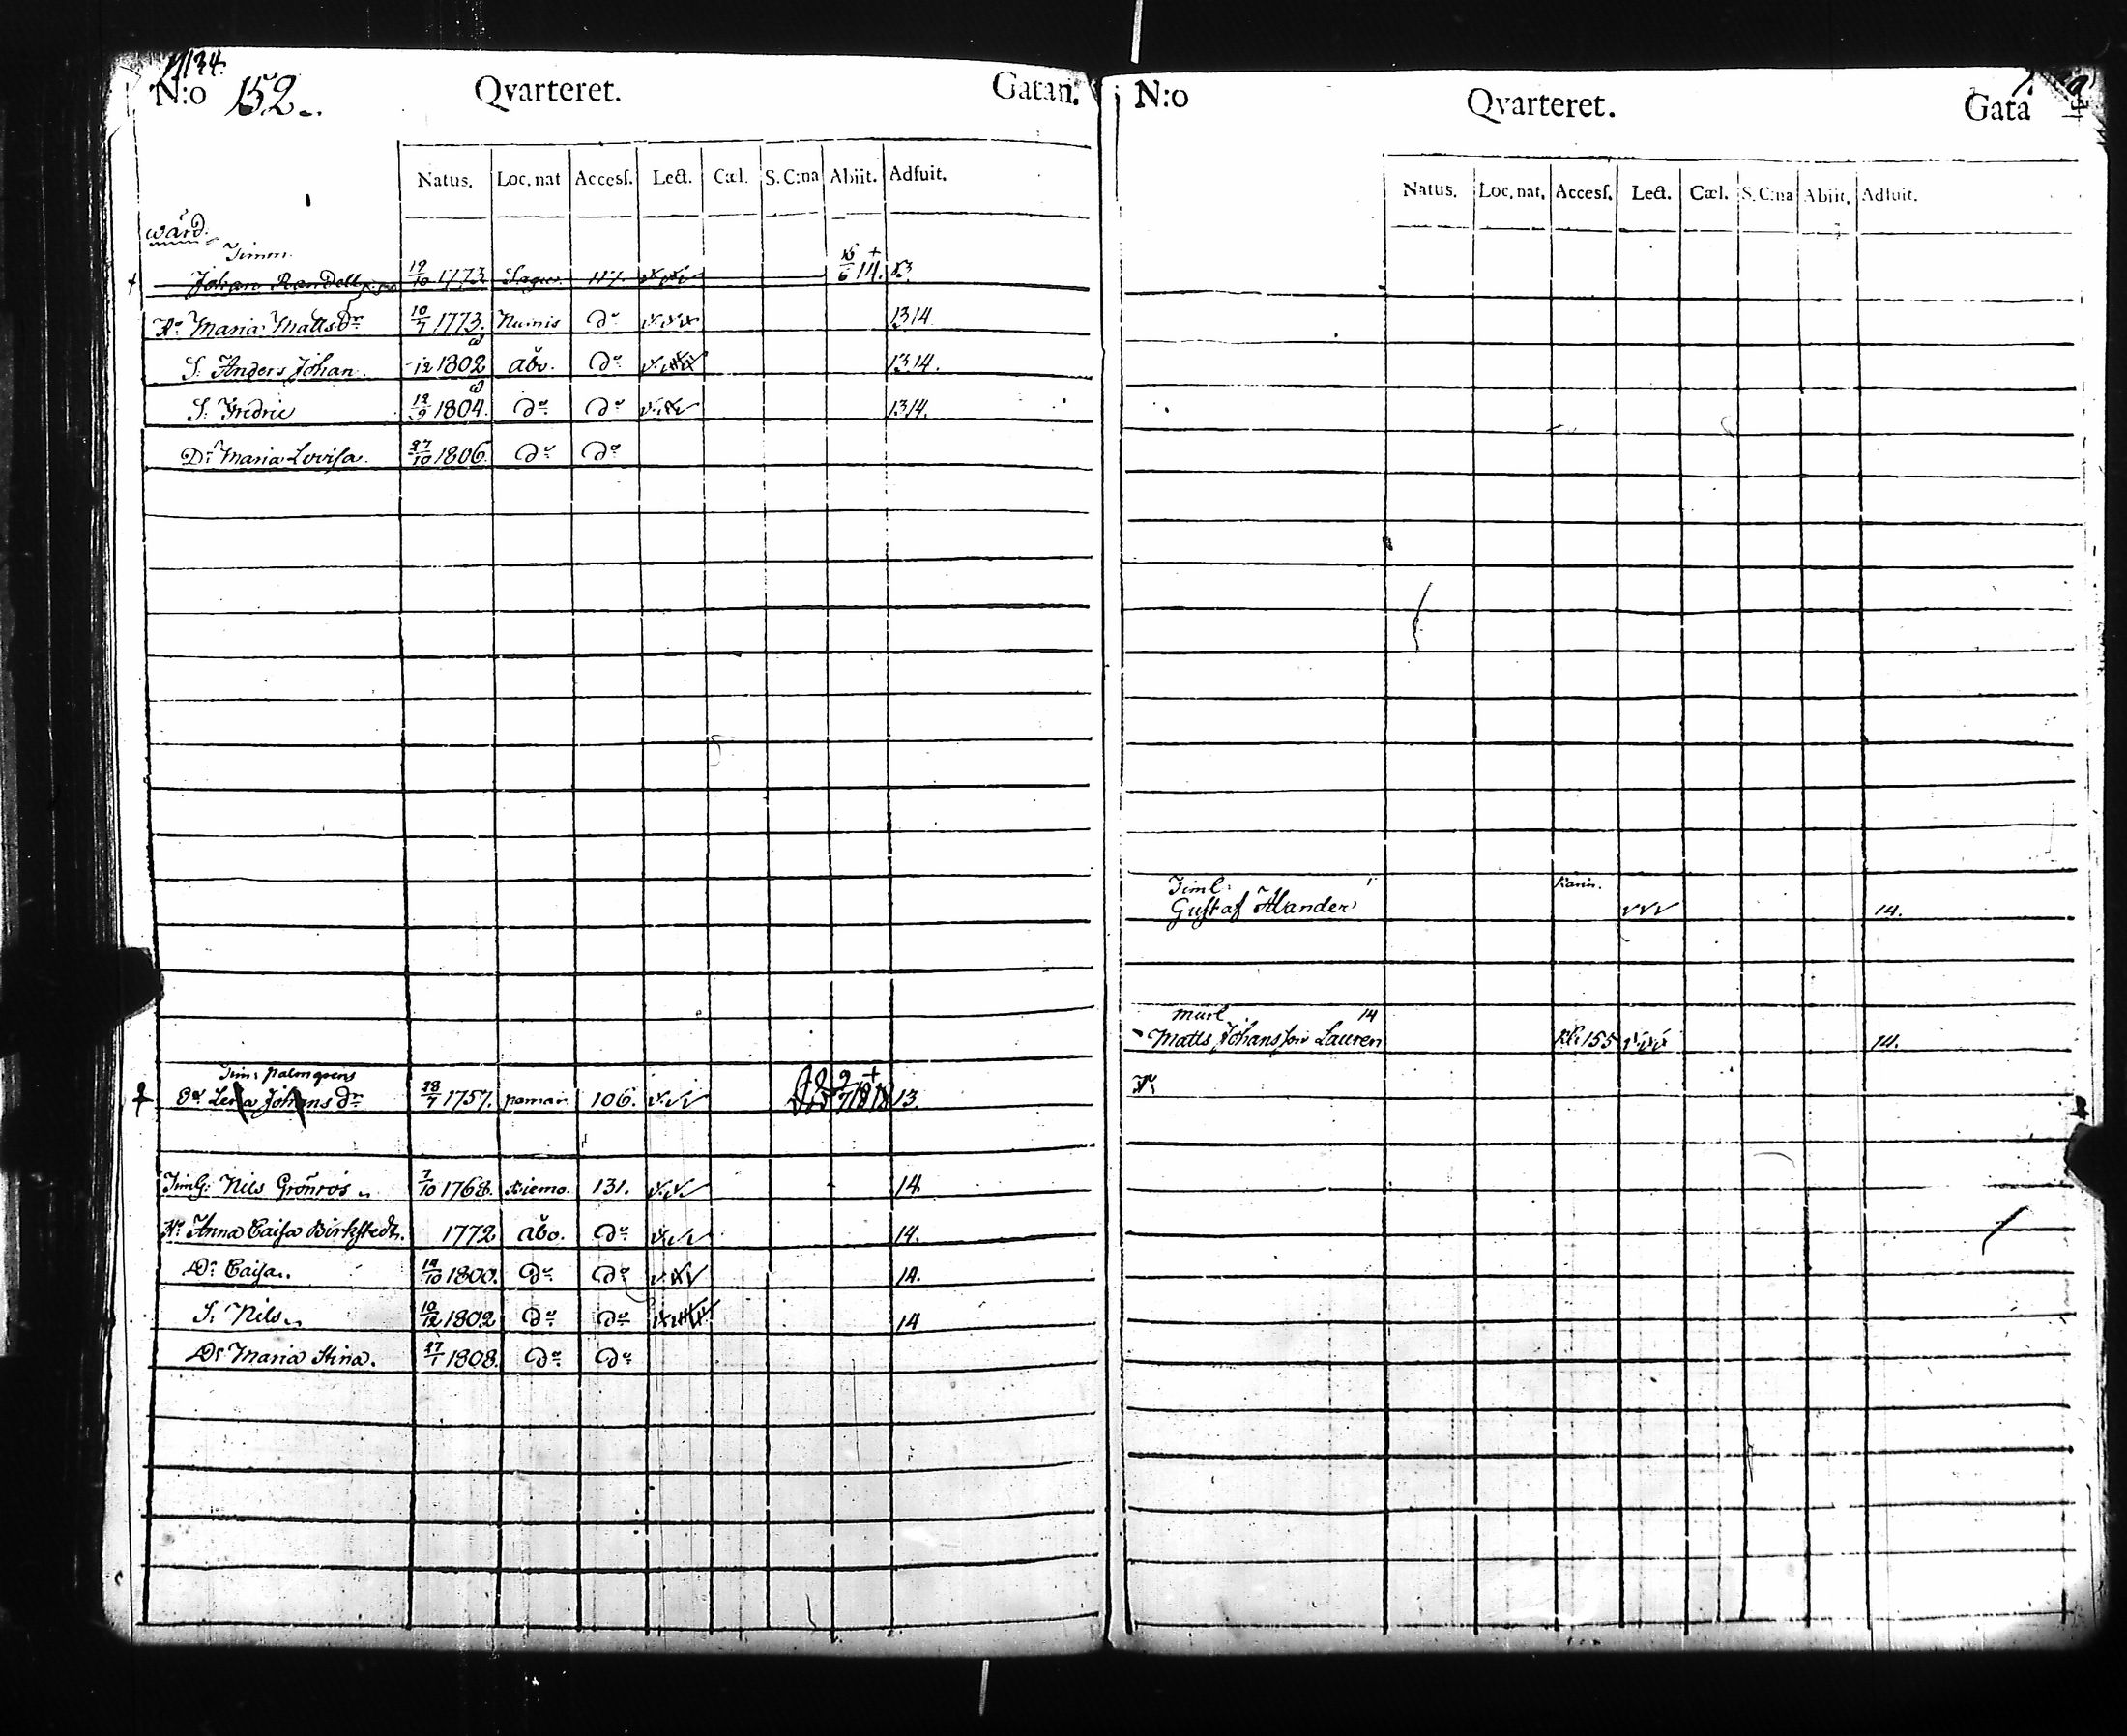 N:o 152. Qvarteret. Gatan.
Natus. Loc. nat Accesſ. Lect. Cæl. S. C:na Abiit. Adfuit.
wärd.
Timm.
Johan Randell 19/10 1773 Sagu. 117. 6 14. 13
Hu Maria Mattsdr 10/7 1773. Numis do 1314
S. Anders Johan. 12 1802 åbo. do 1314.
S. Fredric 12/9 1804. do do 1314.
Dr Maria Lovisa. 27/10 1806. do do
Tim: palmgrens
Lena Johansdr 28/7 1757. pemar. 106. + 13.
TimG: Nils Grönros 7/10 1768. Kiemo. 131. 14
Hu Anna Caisa Birkstedt. 1772 åbo. do 14.
Dr Caisa. 14/10 1800. do do 14.
S. Nils 10/12 1802 do do 14
Dr Maria Stina. 27/1 1808. do do
N:o Qvarteret. Gata
Natus. Loc. nat. Accesſ. Lect. Cæl. S. C:na Abiit. Adfuit.
Timl:
Gustaf Ålander 14.
murl 14
Matts Johansson Lauren 155 14.